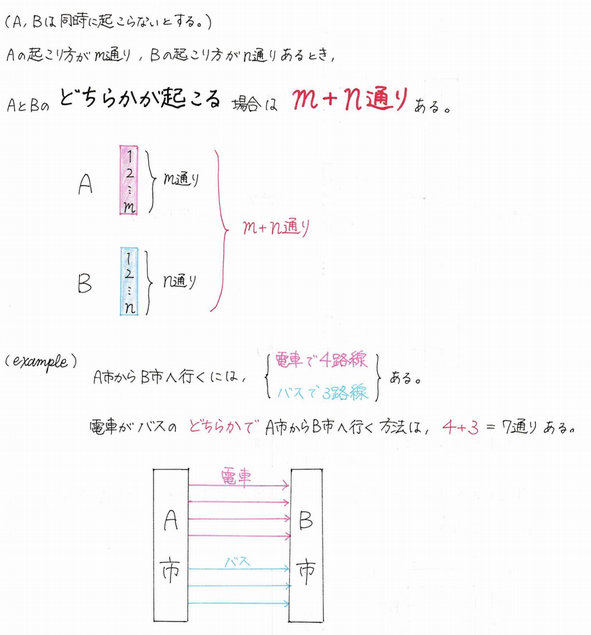 (A, Bは同時に起こらないとする。)
Aの起こり方がm通り, Bの起こり方がn通りあるとき,
AとBの どちらかが起こる 場合は m+n通り ある。
A
1
2
⋮
m
m通り
m+n通り
B
1
2
⋮
n
n通り
(example)
A市からB市へ行くには,
電車で4路線
バスで3路線
ある。
電車がバスの どちらかで A市からB市へ行く方法は, 4+3 = 7通りある。
電車
A市
B市
バス